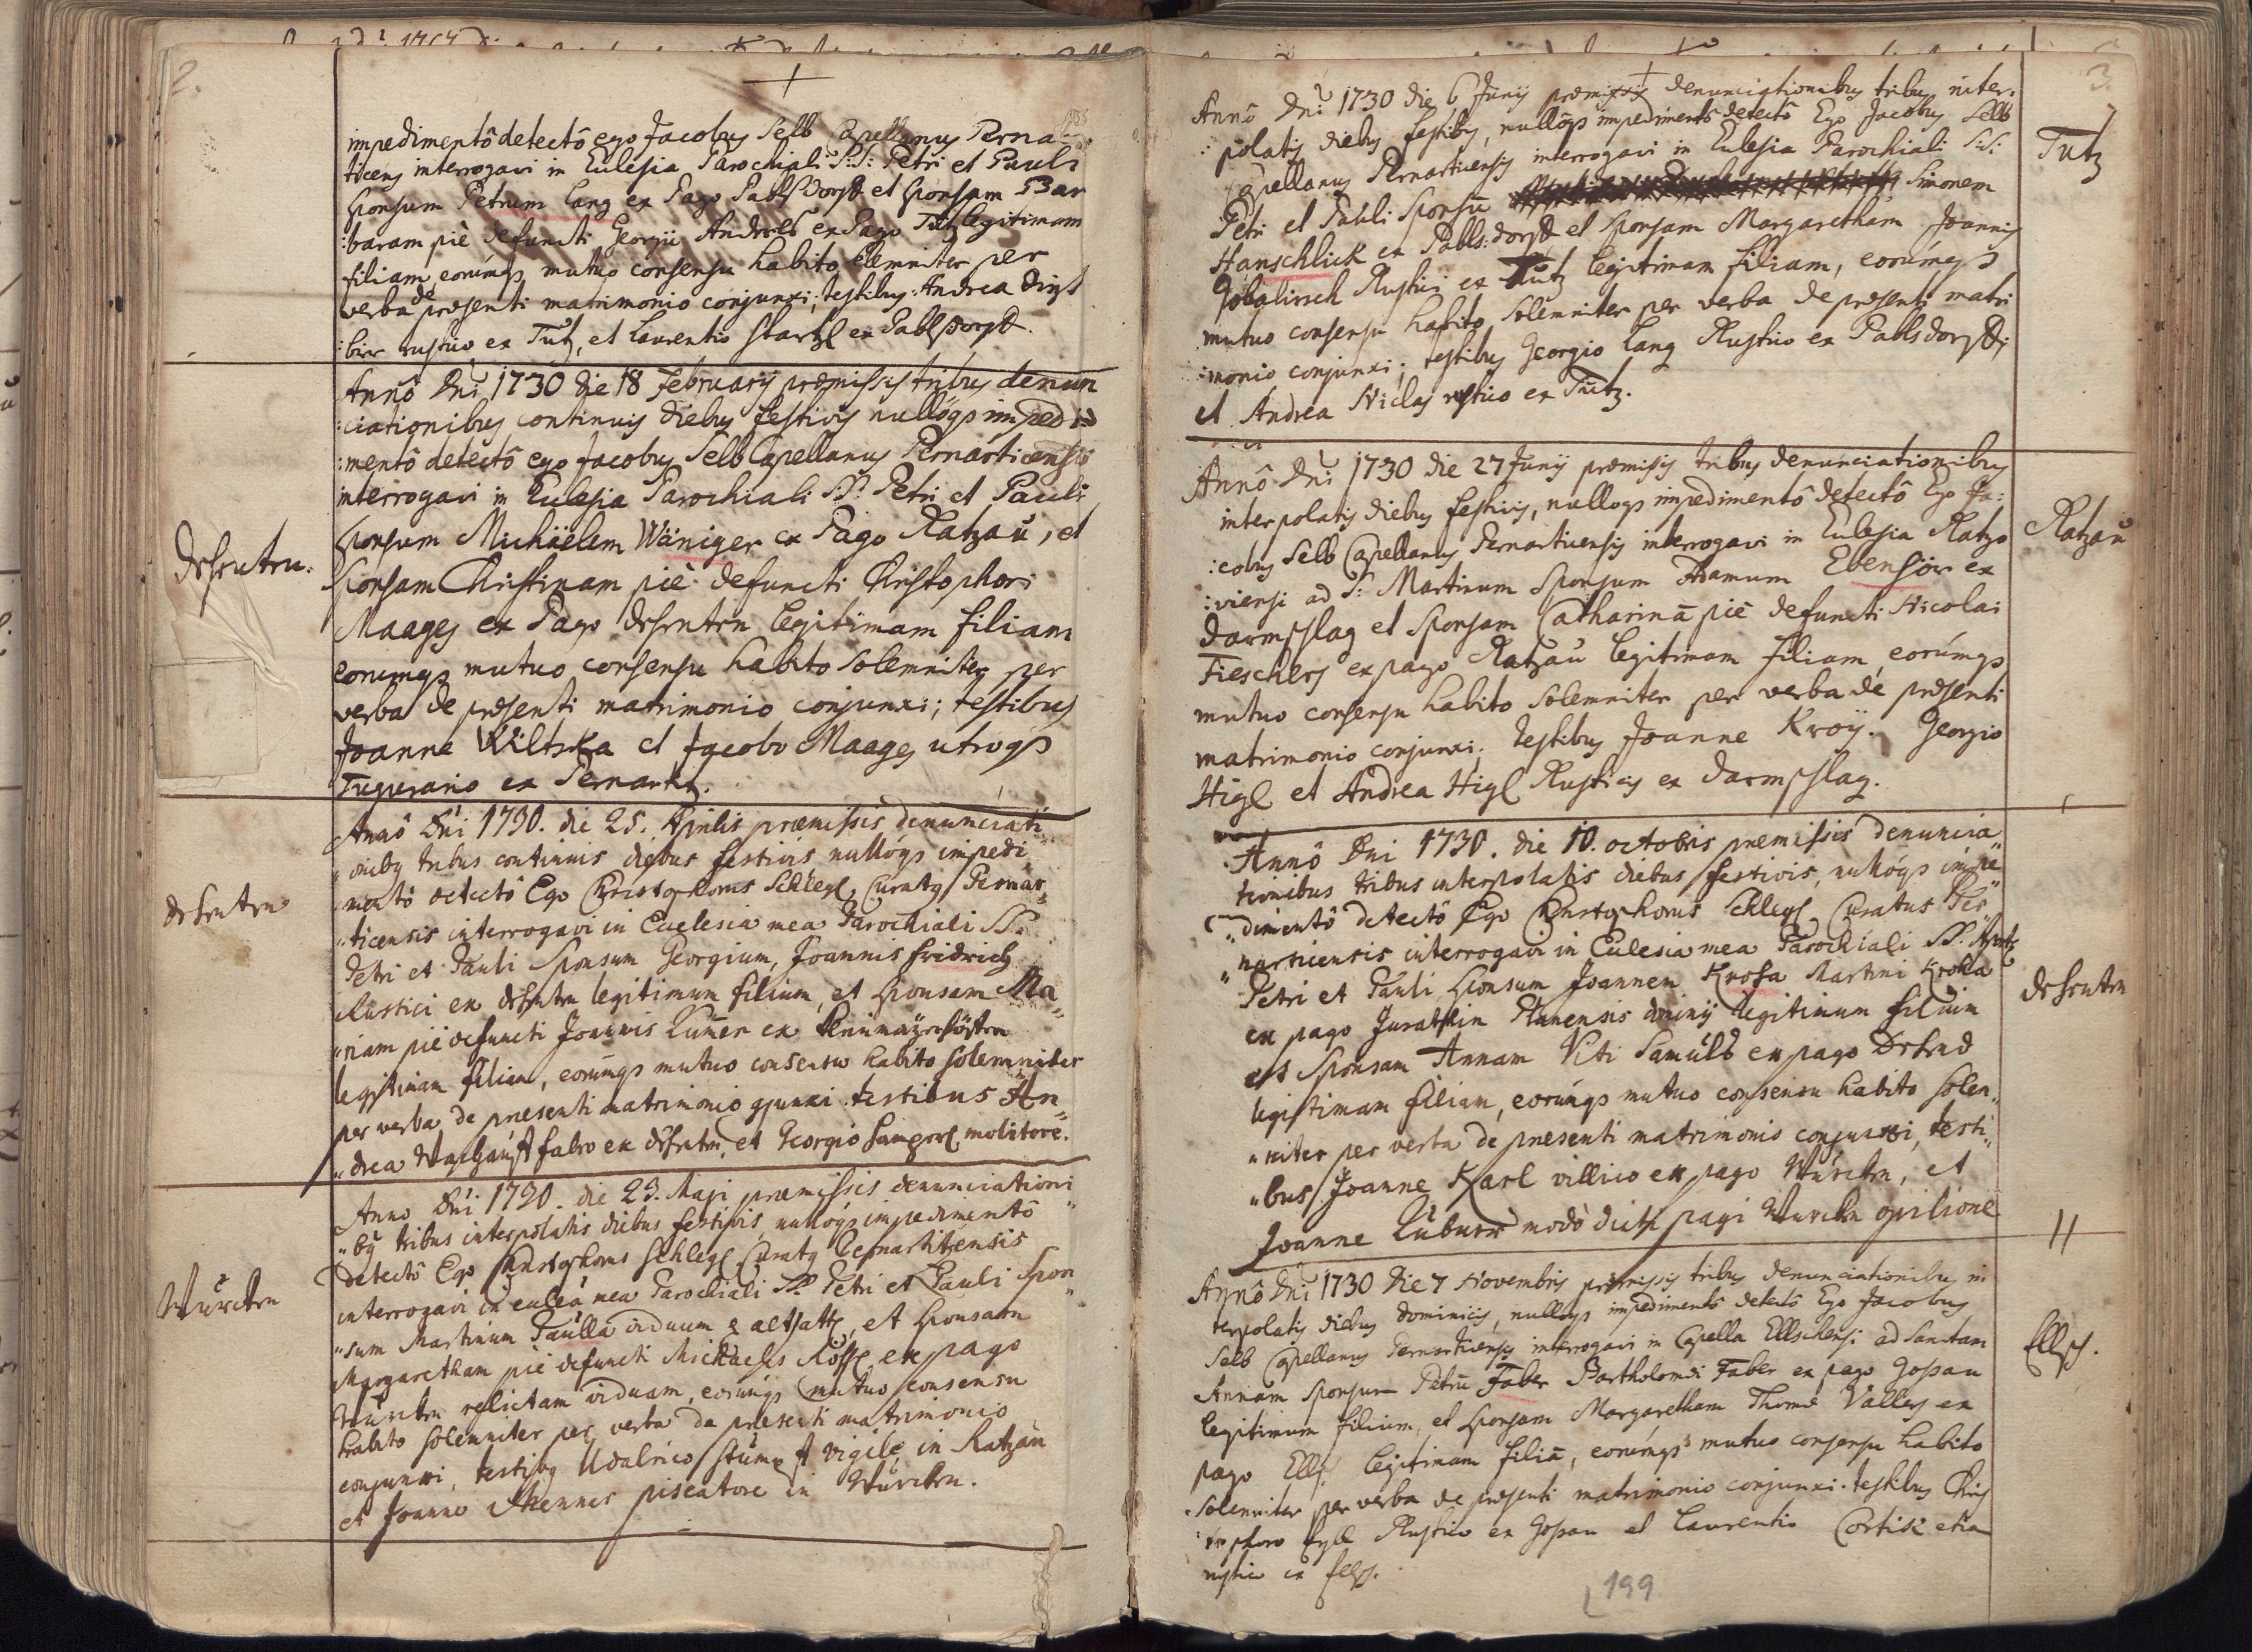 2.
impedimentô detectô ego Jacobus Selb Capellanus Perna
ticens interrogavi in Eulesia Parochiali S:S: Petri et Pauli
sponsum Petrum Lang ex Pago Pablsdorff et sponsam Bar
:baram piè defuncti Georgii ex Pago Tutz legitimam
filiam, eorúmqs mutuo consensu habito solemniter per
verba de prӕsenti matrimonio conjunxi; testibus: Andrea Dirzt
:birr rustico ex Tutz, et Laurentio Startzl ex Pablsdorff.
Annô Dni 1730 die 18 February prӕmissis tribus denun
:ciationibus continuis diebus festivis nullóqs impedi=
:mentô detectô ego Jacobus Selb Capellanus Pernarticensis
interrogavi in Eulesia Parochiali SS: Petri et Pauli
sponsum Michäelem Wäniger ex Pago Ratzaú, et
Sponsam Christinam piè defuncti Christophori
Maages ex Pago legitimam filiam
eorumqs mutuo consensu habito solemniter per
verba de prӕsenti matrimonio conjunxi; testibus
Joanne Wiltska et Jacobo Maages utroqs
Tugurario ex Pernartz.
Annô Dni 1730. die 25. Aprilis prӕmissis denunciati
"onibq tribus continuis diebus festivis nullóqs impedi
"mentô detectô Ego Christophorus Schlegl Curatq Pernar
"ticensis interrogavi in Ecclesia mea Parochiali SS.
Petri et Pauli Sponsum Georgium, Joannis Fridrich
Rustici ex legitimum filium, et sponsam Ma
"riam piè defuncti Joannis ex
legitimam filiam, eorúmqs mutuo consensu habito solemniter
per verba de praesenti matrimonio qjunxi testibus An
"drea fabro ex et Georgio molitore.
Anno Dni 1730. die 23. Maji prӕmissis denunciationi
"bq tribus interpolatis diebus festivis, nullóqs impedimentô
detectô Ego Christophorus Schlegl Curatq Pernartitzensis
interrogavi in eccleâ mea Parochiali SS. Petri et Pauli Spon
"sum Martinum Paulla viduum et sponsam
Margaretham piè defuncti Michaelis ex pago
relictam viduam, eorúmqs mutuo consensu
habito solemniter per verba de praesenti matrimonio
conjunxi, testibq Udalrico Stumpf vigile in Ratzaú
et Joanne piscatore in Wurcken.
Wúrcken
3
Annô Dni 1730 die 6 Junij prӕmissis denunciationibus tribus inter:
:polatis diebus festivis, nullóqs impedimentô detectô Ego Jacobus Selb
Capellanus Pernarticensis interrogavi in Eulesia Parochiali S:S:
Petri et Pauli Sponsū Simonem
Hanschlick ex Pabls:dorff et sponsam Margaretham Joannis
Rustici ex Tutz legitimam filiam, eorúmqs
mutuo consensu habito solemniter per verba de prӕsenti matri
:monio conjunxi; testibus Georgio Lang Rustico ex Pablsdorff;
et Andrea Niclas rustico ex Tutz.
Tutz
Annô Dni 1730 die 27 Junij prӕmissis tribus denunciationibus
interpolatis diebus festivis, nulloqs impedimentô detectô Ego Ja:
:cobus Selb Capellanus Pernarticensis interrogavi in Eulesia Ratzo
:viensi ad S: Martinum Sponsum Adamum Ebenhör ex
Darmschlag et sponsam Catharinā piè defuncti Nicolai
Fieschers ex pago Ratzaú legitimam filiam, eorúmqs
mutuo consensu habito solemniter per verba de prӕsenti
matrimonio conjunxi; testibus Joanne Kroÿ. Georgio
Higl et Andrea Higl Rusticis ex Darmschlag.
Ratzaú
Annô Dni 1730. die 10. octobris praemissis denuncia
tionibus tribus interpolatis diebus festivis, nullóqs impe
"dimentô detectô Ego Christophorus Schlegl Curatus Per
"narticensis interrogavi in Eulesia mea Parochiali SS. Apost
Petri et Pauli, sponsum Joannem Kroha Martini Kroha
ex pago Planensis legitimum filium
et Sponsam Annam Viti ex pago
legitimam filiam, eorúmqs mutuo consensu habito solen
"niter per verba de praesenti matrimonio conjunxi, testi
"bus Joanne Karl villico ex pago Wúrcken, et
Joanne modò dicti pagi Wurcken opilione
Annô Dni 1730 die 7 Novembris prӕmissis tribus denunciationibus in
terpolatis diebus Dominicis, nulloqs impedimentô detectô Ego Jacobus
Selb Capellanus Pernarticensis interrogavi in Capella Ellschensi ad Sanctam
Annam Sponsum Petrū Faber Bartholomӕi Faber ex pago Gossau
legitimum filium, et sponsam Margaretham Thomӕ Valles ex
pago Ellsch legitimam filiā, eorúmqs mutuo consensu habito
solemniter per verba de prӕsenti matrimonio conjunxi. testibus Chris
:tophoro Rustico ex Gossau et Laurentio Cortik etia
rustico ex Ellsch.
Ellsch.
199